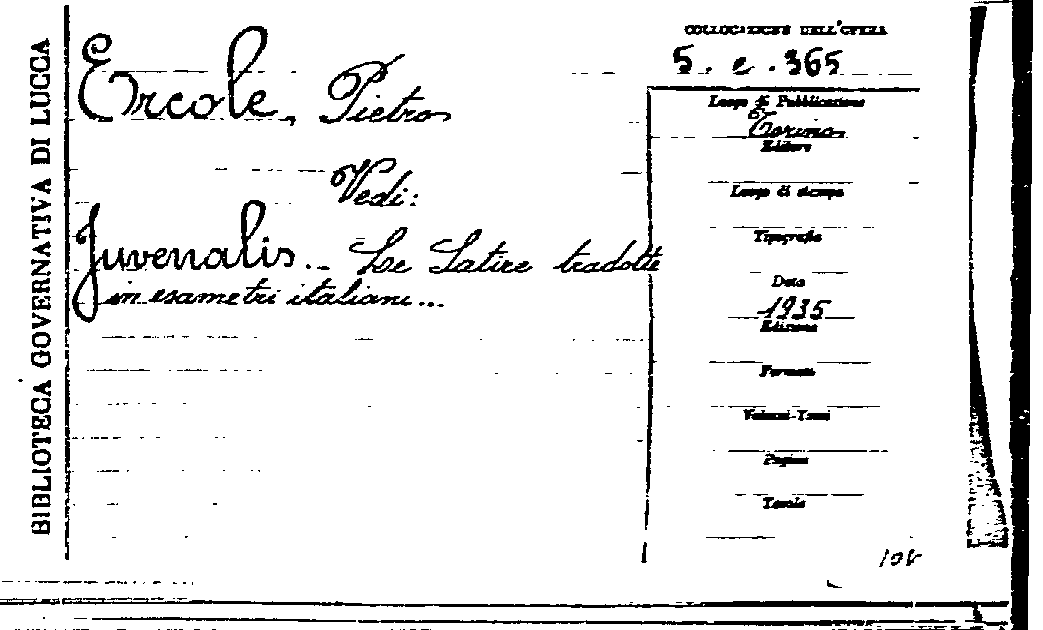 BIBLIOTECA GOVERNATIVA DI LUCCA
COLLOCAZIONE DELL'OPERA
5. e. 365
Ercole, Pietro
Vedi:
Juvenalis. - Le Satire tradotte
in esametri italiani...
Luogo di Pubblicazione
Torino
Editore
Luogo di stampa
Tipografia
Data
1935
Edizione
Formato
Volumi-Tomi
Pagine
Tavole